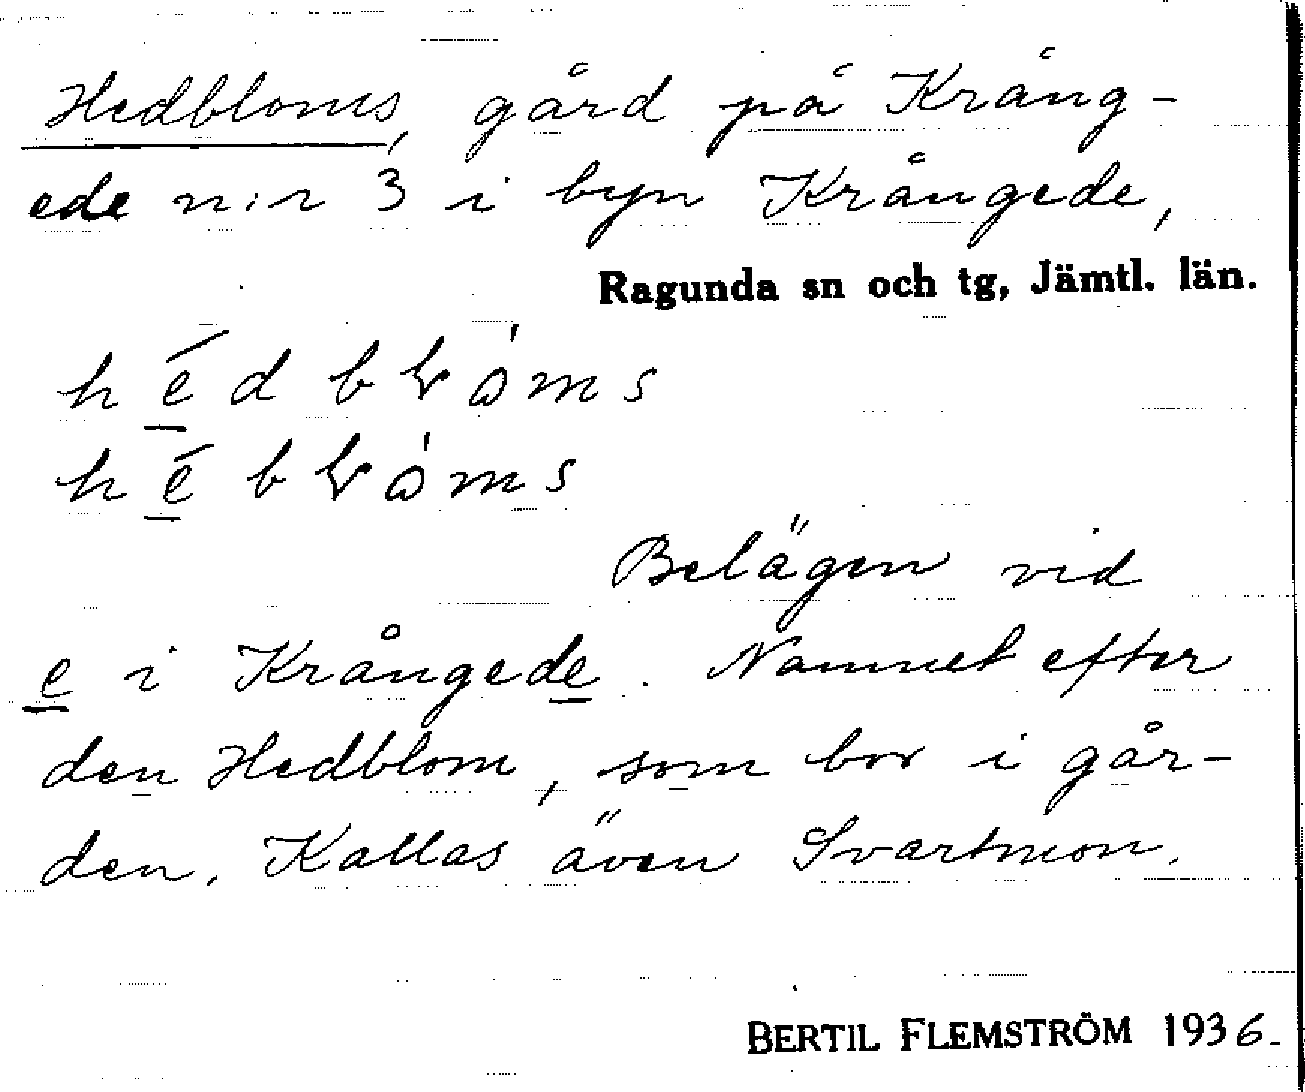 Hedbloms, gård på Krång-
ede n:r 3 i byn Krångede,
Ragunda sn och tg, Jämtl. län.
Belägen vid
e i Krångede. Namnet efter
den Hedblom, som bor i går-
den. Kallas även Svartmon.
BERTIL FLEMSTRÖM 1936.